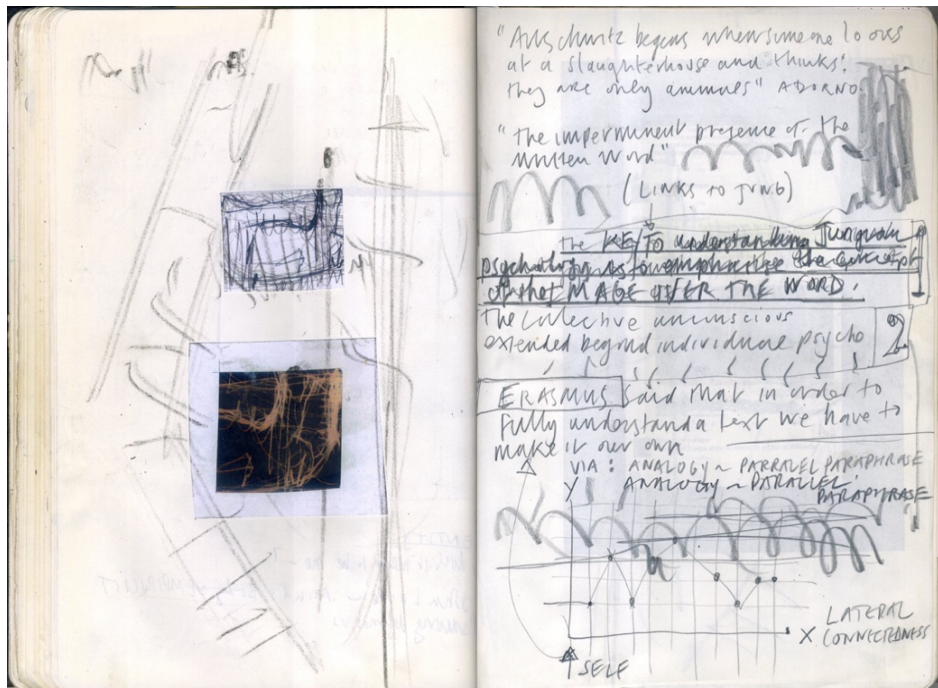 "Auschwitz begins when someone looks
at a slaughterhouse and thinks:
they are only animals" ADORNO.
"The impermanent presence of the
written word"
(LINKS TO JUNG)
the KEY TO understanding Jungian
psychology is to emphasise the concept
of the IMAGE OVER THE WORD.
The collective unconscious
extended beyond individual psycho
2
ERASMUS said that in order to
fully understand a text we have to
make it our own
VIA: ANALOGY ~ PARRALEL PARAPHRASE
Y ANALOGY ~ PARALLEL
PARAPHRASE
LATERAL
X CONNECTEDNESS
SELF